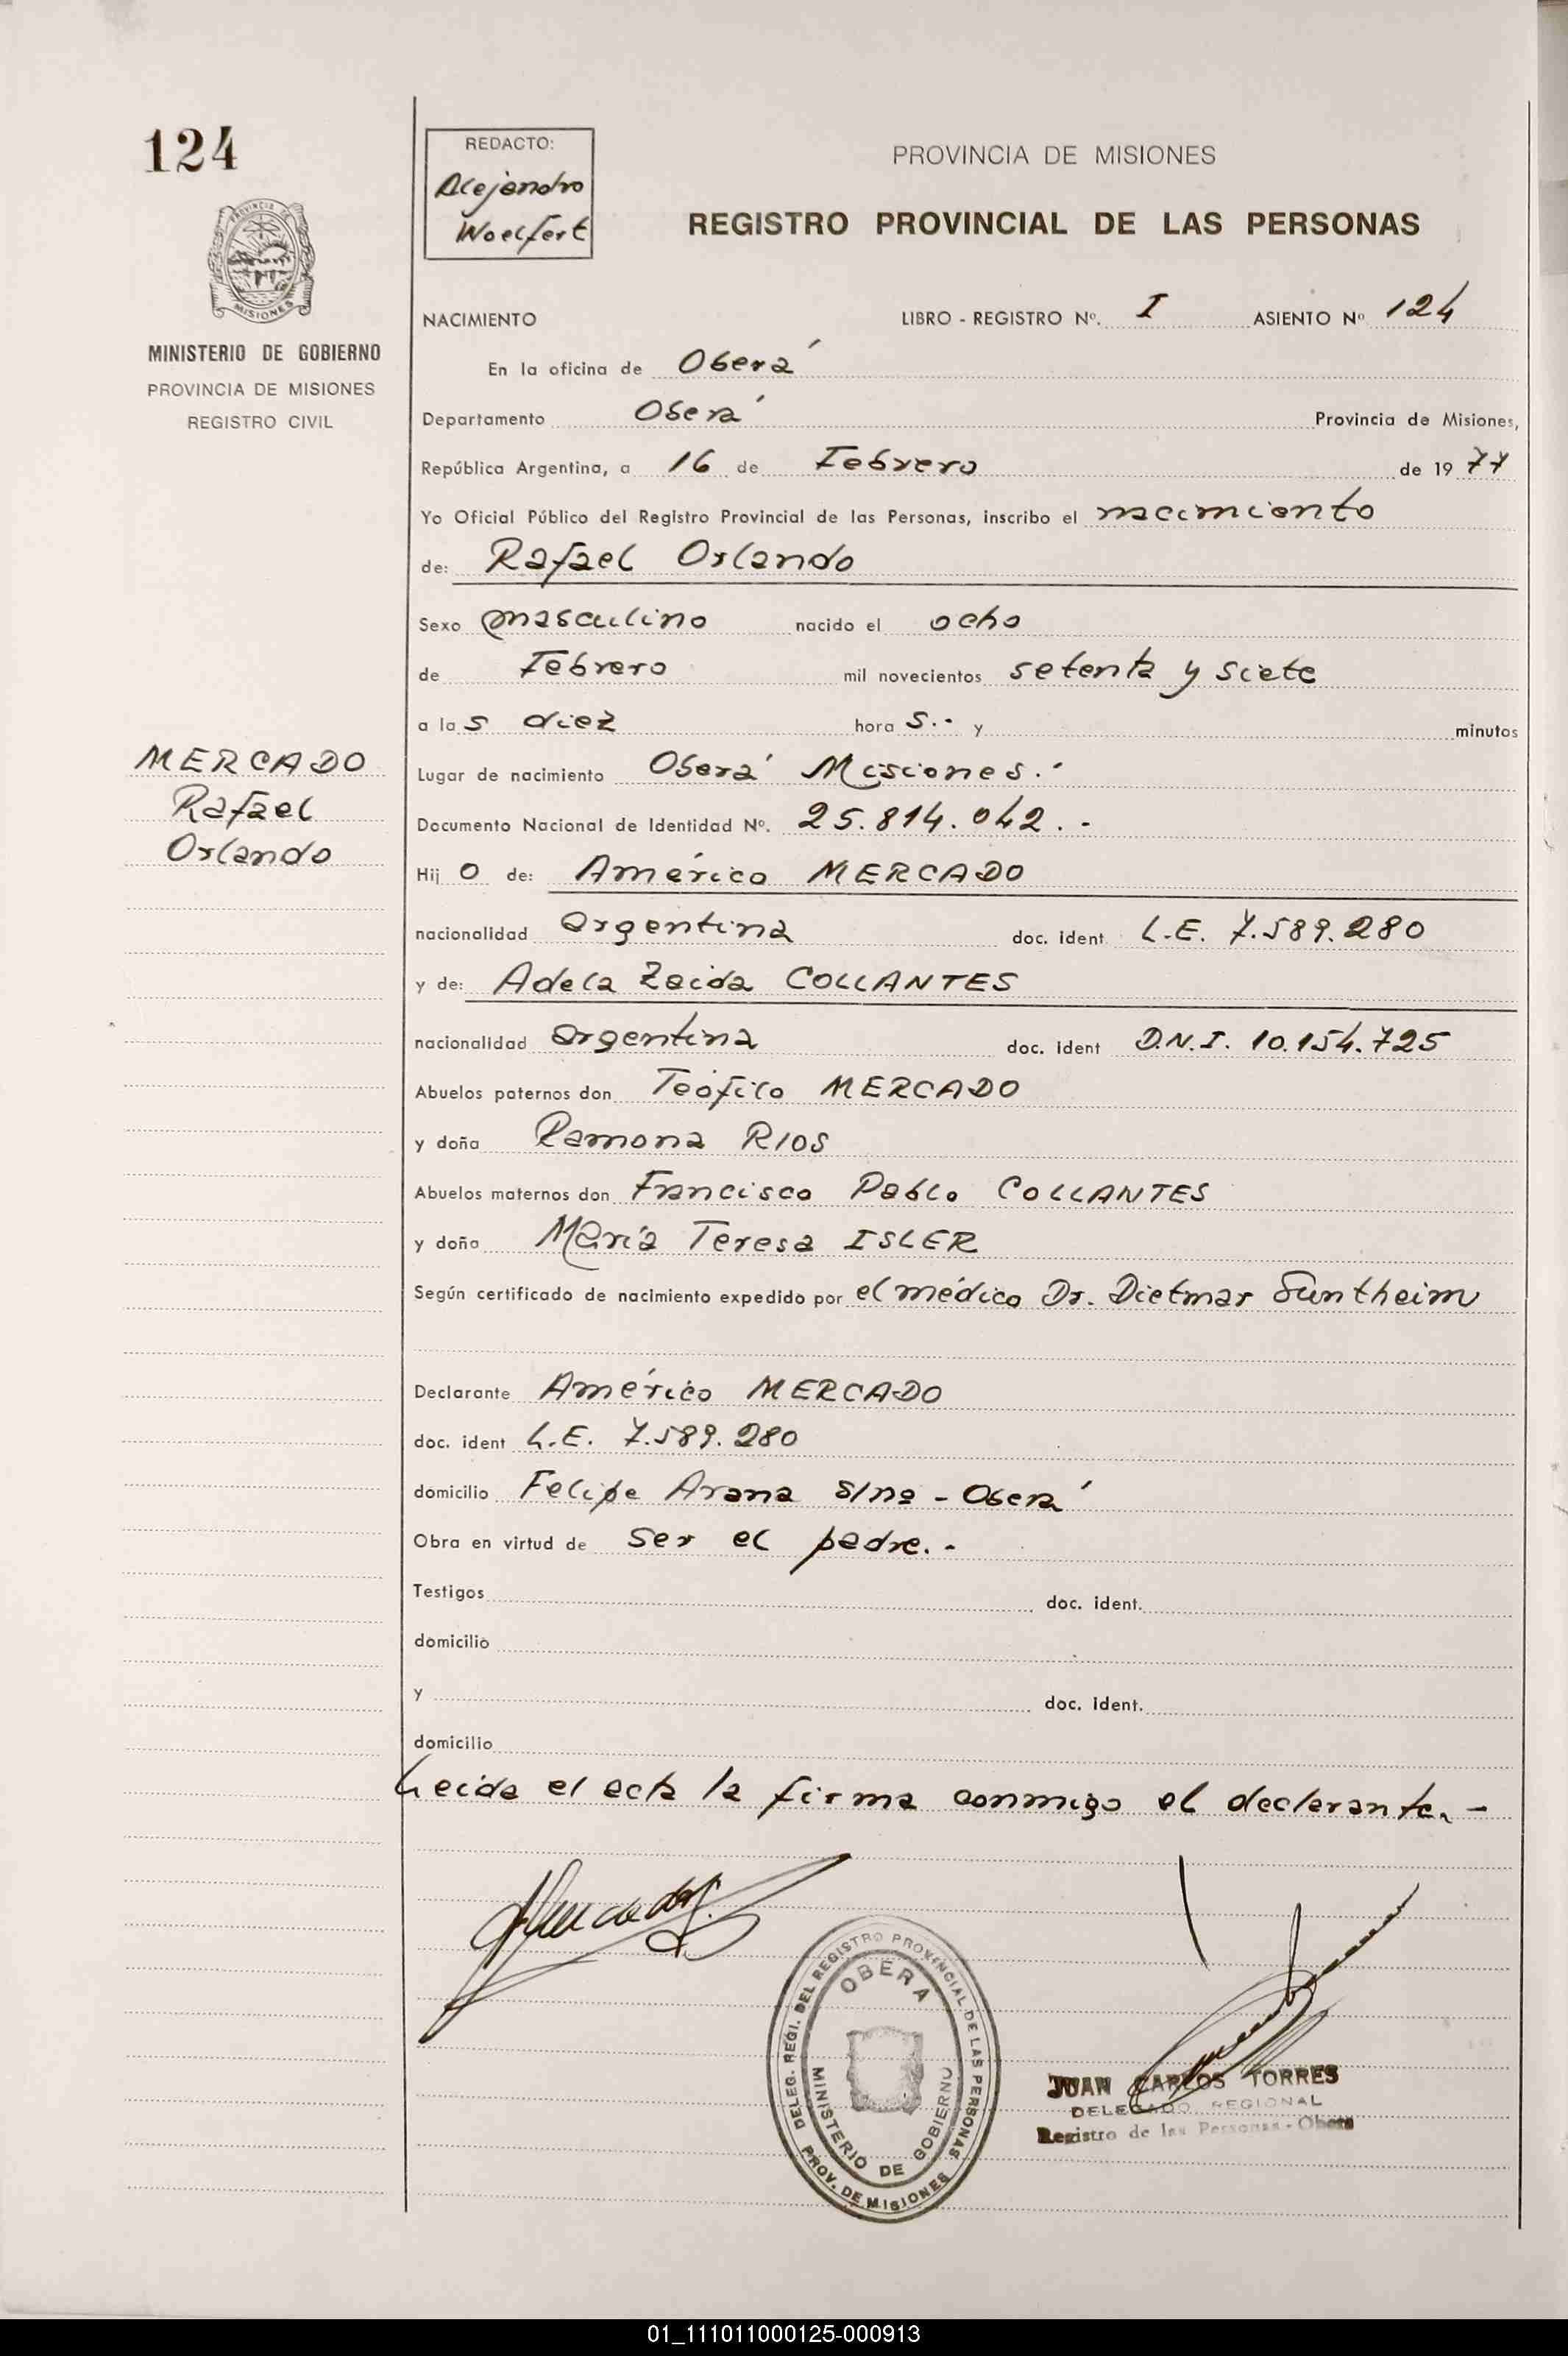 124
PROVINCIA DE
MISIONES
MINISTERIO DE GOBIERNO
PROVINCIA DE MISIONES
REGISTRO CIVIL
MERCADO
Rafael
Orlando
REDACTO:
Alejandro
Woelfert
PROVINCIA DE MISIONES
REGISTRO PROVINCIAL DE LAS PERSONAS
NACIMIENTO LIBRO - REGISTRO Nº. I ASIENTO Nº 124
En la oficina de Oberá
Departamento Oberá Provincia de Misiones,
República Argentina, a 16 de Febrero de 1977
Yo Oficial Público del Registro Provincial de las Personas, inscribo el nacimiento
de: Rafael Orlando
Sexo masculino nacido el ocho
de Febrero mil novecientos setenta y siete
a las diez horas.- y minutos
Lugar de nacimiento Oberá Misiones.-
Documento Nacional de Identidad Nº. 25.814.042.-
Hijo de: Américo MERCADO
nacionalidad argentina doc. ident. L.E. 7.589.280
y de: Adela Zaida COLLANTES
nacionalidad argentina doc. ident D.N.I. 10.154.725
Abuelos paternos don Teófilo MERCADO
y doña Ramona RIOS
Abuelos maternos don Francisco Pablo COLLANTES
y doña María Teresa ISLER
Según certificado de nacimiento expedido por el médico Dr. Dietmar Suntheim
Declarante Américo MERCADO
doc. ident L.E. 7.589.280
domicilio Felipe Arana s/nº - Oberá
Obra en virtud de ser el padre.-
Testigos doc. ident.
domicilio
y doc. ident.
domicilio
Leida el acta la firma conmigo el declarante.-
DELEG. REGI. DEL REGISTRO PROVINCIAL DE LAS PERSONAS
OBERA
MINISTERIO DE GOBIERNO
PROV. DE MISIONES
JUAN CARLOS TORRES
DELEGADO REGIONAL
Registro de las Personas - Obera
01_111011000125-000913